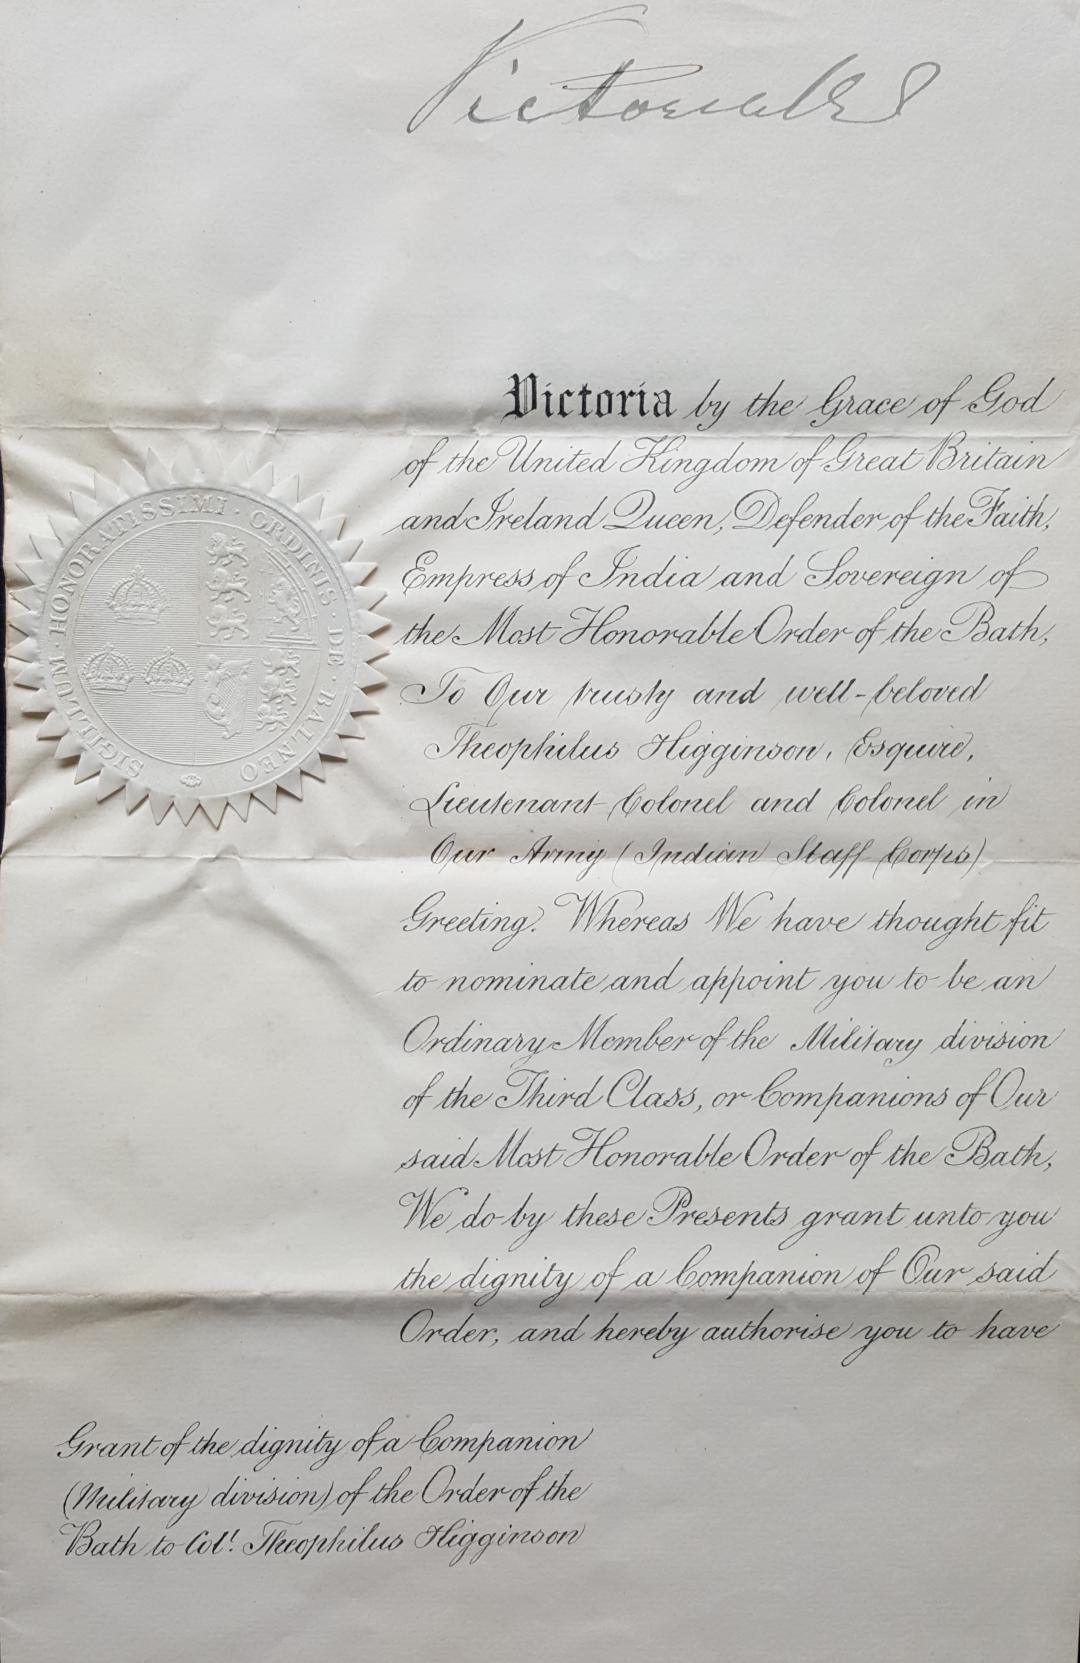 Victoria R I
Victoria by the Grace of God
of the United Kingdom of Great Britain
and Ireland Queen, Defender of the Faith,
Empress of India and Sovereign of
the Most Honorable Order of the Bath,
To Our trusty and well-beloved
Theophilus Higginson, Esquire,
Lieutenant Colonel and Colonel in
Our Army (Indian Staff Corps)
Greeting. Whereas We have thought fit
to nominate and appoint you to be an
Ordinary Member of the Military division
of the Third Class, or Companions of Our
said Most Honorable Order of the Bath,
We do by these Presents grant unto you
the dignity of a Companion of Our said
Order, and hereby authorise you to have
SIGILLUM · HONORATISSIMI · ORDINIS · DE · BALNEO
Grant of the dignity of a Companion
(Military division) of the Order of the
Bath to Col! Theophilus Higginson